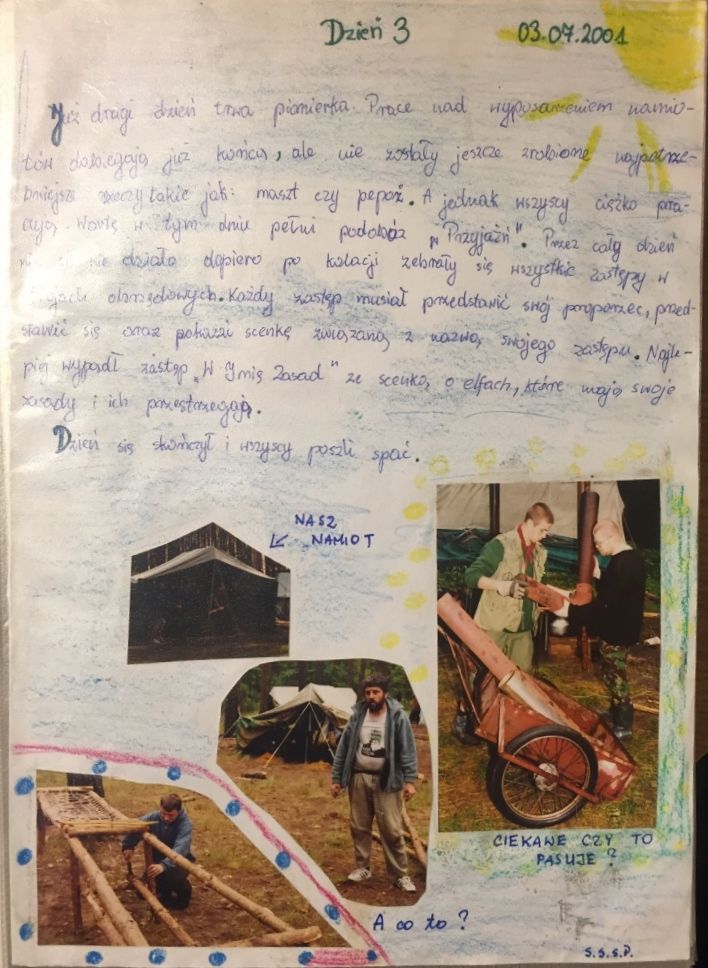 Dzień 3 03.07.2001
Już drugi dzień trwa pionierka. Prace nad wyposarzeniem namio-
tów dobiegają już końca, ale nie zostały jeszcze zrobione najpotrze-
bniejsze rzeczy takie jak: maszt czy pepoż. A jednak wszyscy ciężko pra-
cują. Wartę w tym dniu pełni podobóz "Przyjaźń". Przez cały dzień
nic się nie działo dopiero po kolacji zebrały się wszystkie zastępy w
strojach obrzędowych. Każdy zastęp musiał przedstawić swój proporzec, przed-
stawić się oraz pokazać scenkę związaną z nazwą swojego zastępu. Najle-
piej wypadł zastęp „W Imię Zasad" ze scenką o elfach, które mają swoje
zasady i ich przestrzegają.
Dzień się skończył i wszyscy poszli spać.
NASZ
NAMIOT
CIEKAWE CZY TO
PASUJE?
A co to?
S.S.S.P.